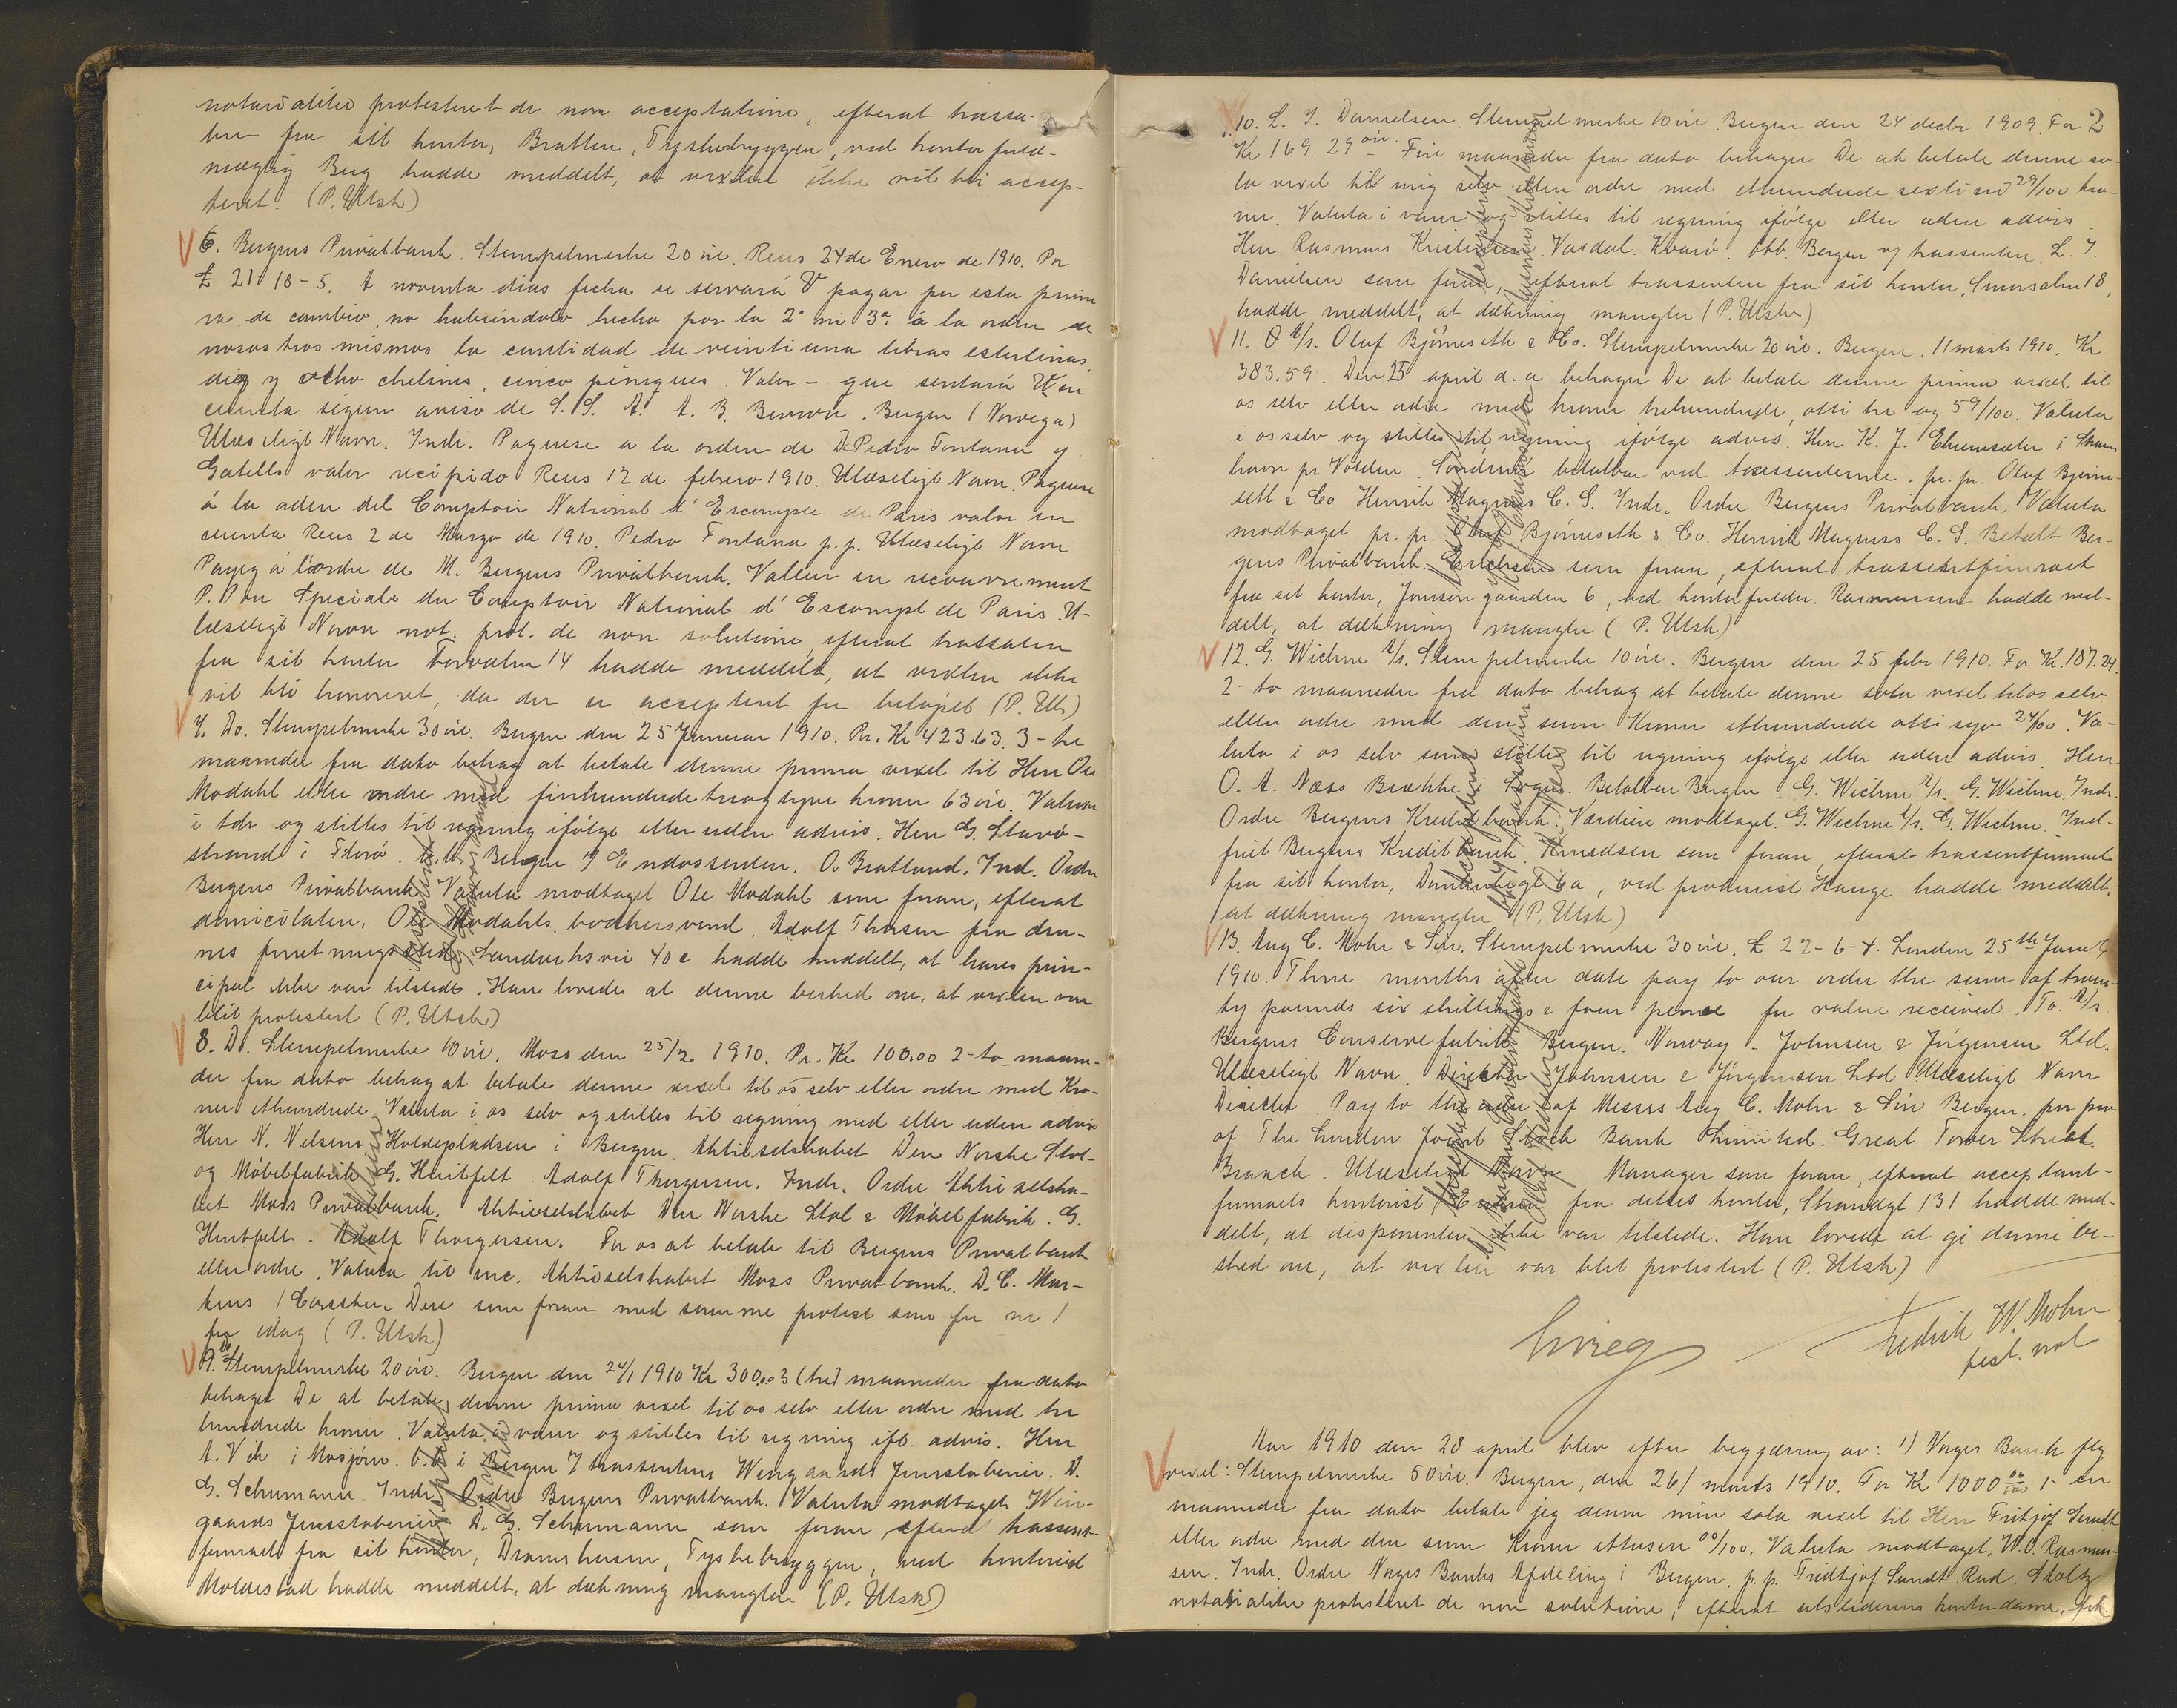 notarialiter protesteret de non acceptatione, efterat trassa-
ten fra sit kontor, Bratten, Tyskebryggen, ved kontorfuld-
mægtig Berg hadde meddelt, at vexelen ikke vil bli accep-
teret. (P. Utsk)
6. Bergens Privatbank. Stempelmerke 20 øre. Reus 24 de Enero de 1910. Por
£ 21-18-5. A noventa dias fecha se servará V pagar por esta prime
ra de cambio, no habiéndolo hecho por la 2ª ni 3ª á la orden de
nosostros mismos la cantidad de veintiuna libras esterlinas,
diez y ocho chelines, cinco peniques. Valor - que sentará V en
cuenta segun aviso de S. S. A. A. B. Bergen (Norvega)
Ulæseligt Navn. Indr. Paguese a la orden de D. Pedro Fontana y
Gatells valor recipido Reus 12 de febrero 1910. Ulæseligt Navn. Paguese
á la orden del Comptoir National d'Escompte de Paris valor en
cuenta Reus 2 de Marzo de 1910. Pedro Fontana p. p. Ulæseligt Navn
Payez á l'ordre de M. Bergens Privatbank. Valeur en recouvrement
P. Pon Speciale du Comptoir National d'Escompt de Paris. U-
læseligt Navn not. prot. de non solutione, efterat trassaten
fra sit kontor Torvalm 14 hadde meddelt, at vexlen ikke
vil bli honoreret, da der er acceptert for beløpet (P. Uts)
7. Do. Stempelmerke 30 øre. Bergen den 25 Januar 1910. Pr. Kr 423.63. 3 - tre
maaneder fra dato behag at betale denne prima vexel til Herr Ole
Modahl eller ordre med firehundrede treogtyve kroner 63 øre. Valuta
i do og stilles til regning ifølge eller uden advis. Herr G. Stavø-
strand i Florø. bet. Bergen 7 Endossenten. O. Bratland. Ind. Ordre
Bergens Privatbank Valuta modtaget Ole Modahl som foran, efterat
domicilaten, Ole Modahls, bodkersvend Adolf Thorsen fra den-
nes forretningssted, Sandviksvei 40 c hadde meddelt, at hans prin-
cipal ikke var tilstede. Han lovede at denne besked om, at vexlen var
blit protestert (P. Utsk)
8. Do. Stempelmerke 10 øre. Moss den 25/2 1910. Pr. Kr 100.00 2 - to maane-
der fra dato behag at betale denne vexel til os selv eller ordre med Kro-
ner ethundrede Valuta i os selv og stilles til regning med eller uden advis
Herr N. Nelsens, Holdepladsen i Bergen. Aktieselskabet Den Norske Stol-
og Møbelfabrik G. Huitfelt. Adolf Thorgersen. Indr. Ordre Aktieselska-
bet Moss Privatbank. Aktieselskabet Den Norske Stol & Møbelfabrik. G.
Huitfelt. Adolf Thorgersen. For os at betale til Bergens Privatbank
eller ordre. Valuta til inc. Aktieselskabet Moss Privatbank. D. C. Mar-
kus / Dere som foran med samme protest som for nr 1
for idag (P. Utsk)
9. Do Stempelmerke 20 øre. Bergen den 24/1 1910 Kr 300.00 3 (tre) maaneder fra dato
behager De at betale denne prima vexel til os selv eller ordre med tre
hundrede kroner. Valuta i varer og stilles til regning ifl. advis. Herr
A. Vik i Mosjøen. b.b. i Bergen 7 trassenten, Wingaards Jernstøberi. D.
G. Schumann. Indr. Ordre Bergens Privatbank. Valuta modtaget Win-
gaards Jernstøberi D. G. Schumann som foran efterat trassent-
firmaet fra sit kontor, Dramshusen, Tyskebryggen, ved kontorist
Moldestad hadde meddelt, at dækning mangler (P. Utsk)
2
10. L. J. Danielsen. Stempelmerke 10 øre. Bergen den 24 decbr 1909. For
Kr 169.29 øre. Fire maaneder fra dato behager De at betale denne so-
la vexel til mig selv eller ordre med ethundrede sexti ni 29/100 kro-
ner. Valuta i varer og stilles til regning ifølge eller uden advis.
Herr Rasmus Kristensen. Vasdal. Kvarø. btb. Bergen v/ trassenten. L. J.
Danielsen som foran, efterat trassenten fra sit kontor, Smørsalm 18,
hadde meddelt, at dækning mangler (P. Utskr)
11. A/s. Olaf Bjørneseth & Co. Stempelmerke 20 øre. Bergen, 11 marts 1910. Kr
383.59. Den 25 april d. a behager De at betale denne prima vexel til
os selv eller ordre med kroner trehundrede, otti tre og 59/100. Valuta
i os selv og stilles til regning ifølge advis. Herr K. J. Ehumsæter i
havn pr Volden. Søndmør betalbar ved trassenterne. pr. pr. Olaf Bjørne-
seth & Co Henrik Magnus C. S. Indr. Ordre Bergens Privatbank. Valuta
modtaget pr. pr. Olaf Bjørneseth & Co. Henrik Magnuss C. S. Betalt Ber-
gens Privatbank. Erichsen som foran, efterat trassentfirmaet
fra sit kontor, Jonsvorgaarden 6, ved kontorfuldm. Rasmussen hadde med-
delt, at dækning mangler (P. Utsk)
12. G. Wichne A/s. Stempelmerke 10 øre. Bergen den 25 febr 1910. For Kr. 187.24
2 - to maaneder fra dato behag at betale denne sola vexel til os selv
eller ordre med den sum Kroner ethundrede otti syv 24/100. Va-
luta i os selv som stilles til regning ifølge eller uden advis. Herr
O. A. Næss Brække i Sogn. Betalbar Bergen. G. Wichne A/s. G. Wichne. Indr.
Ordre Bergens Kreditbank. Værdien modtaget. G. Wichne A/s. G. Wichne. Ind-
friet Bergens Kreditbank. Knudsen som foran, efterat trassentfirmaet
fra sit kontor, 6a, ved prokurist Hauge hadde meddelt,
at dækning mangler (P. Utsk)
13. Aug C. Mohr & Søn. Stempelmerke 30 øre. £ 22-6-4. London 25th Jany
1910. Three months after date pay to our order the sum of twen-
ty pounds six shillings & four pence for value received. To. A/s
Bergens Conservefabrik Bergen. Norway - Johnsen & Jörgensen Ltd.
Ulæseligt Navn. Director Johnsen & Jörgensen Ltd Ulæseligt Navn
Director. Pay to the order of Messrs Aug C. Mohr & Søn Bergen. per pro
of The London Joint Stock Bank Limited. Great Tower Street
Branch. Ulæseligt Navn Manager som foran, efterat acceptant-
firmaets kontorist fra dettes kontor, Strandgt 131 hadde med-
delt, at disponenten ikke var tilstede. Han lovede at gi denne be-
sked om, at vexlen var blit protestert (P. Utsk)
Fredrik W. Mohn
fest. not
Aar 1910 den 28 april blev efter begjæring av: 1) Norges Bank flg
vexel: Stempelmerke 50 øre. Bergen, den 26/ marts 1910. For Kr 1000 00/100 1 - en
maaneder fra dato betale jeg denne min sola vexel til Herr Fritjof Sundt
eller ordre med den sum Kroner ettusen 00/100. Valuta modtaget. W. O. Rasmus-
sen. Indr. Ordre Norges Banks Afdeling i Bergen. p. p. Fridtjof Sundt. Rud. Stoltz
notarialiter protesteret de non solutione, efterat utstederens kontordame, frk